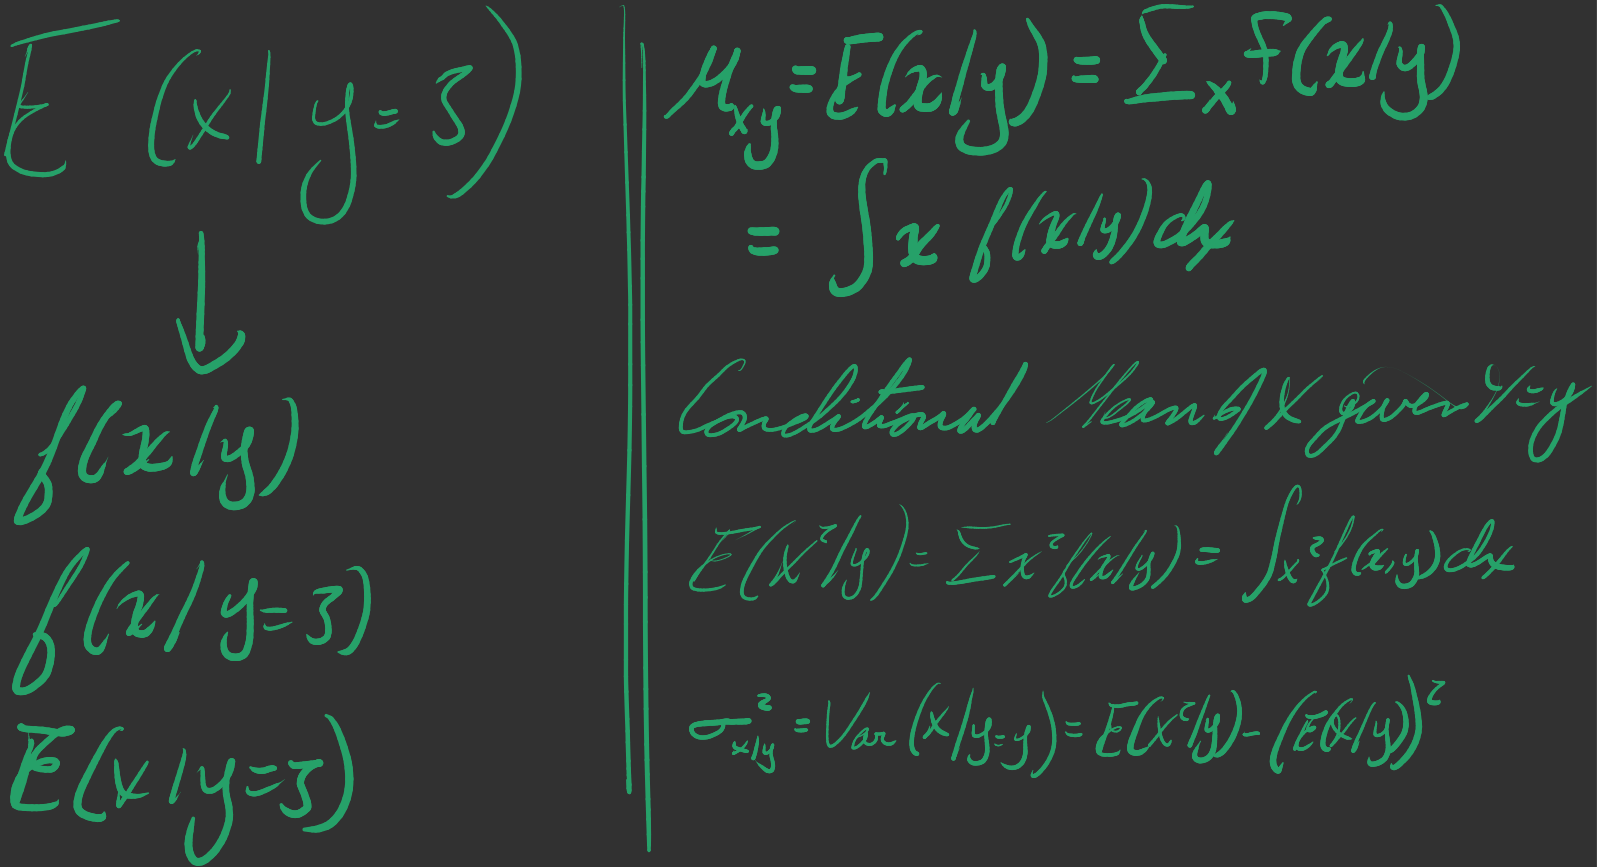 E (x | y = 3)
f(x|y)
f(x|y=3)
E(x|y=3)
μ_xy = E(x|y) = Σ_x f(x|y)
= ∫ x f(x|y) dx
Conditional Mean of X given Y=y
E(X²|y) = Σ x² f(x|y) = ∫ x² f(x,y) dx
σ²_x|y = Var (X|y=y) = E(X²|y) - (E(X|y))²